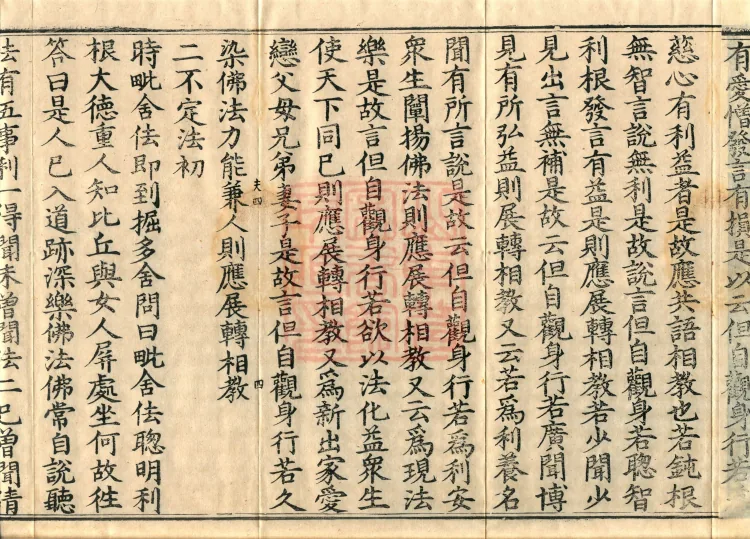 有愛憎發言有損是以云但自觀身行若
慈心有利益者是故應共語相教也若鈍根
無智言說無利是故說言但自觀身若聰智
利根發言有益是則應展轉相教若少聞少
見出言無補是故云但自觀身行若廣聞博
見有所弘益則展轉相教又云若爲利養名
聞有所言說是故云但自觀身行若爲利安
衆生闡揚佛法則應展轉相教又云爲現法
樂是故言但自觀身行若欲以法化益衆生
使天下同已則應展轉相教又爲新出家愛
戀父母兄弟妻子是故言但自觀身行若久
夫四 四
染佛法力能兼人則應展轉相教
二不定法初
時毗舍佉即到掘多舍問曰毗舍佉聰明利
根大德重人知比丘與女人屏處坐何故往
答曰是人已入道跡深樂佛法佛常自說聽
法有五事利一得聞未曾聞法二已曾聞清